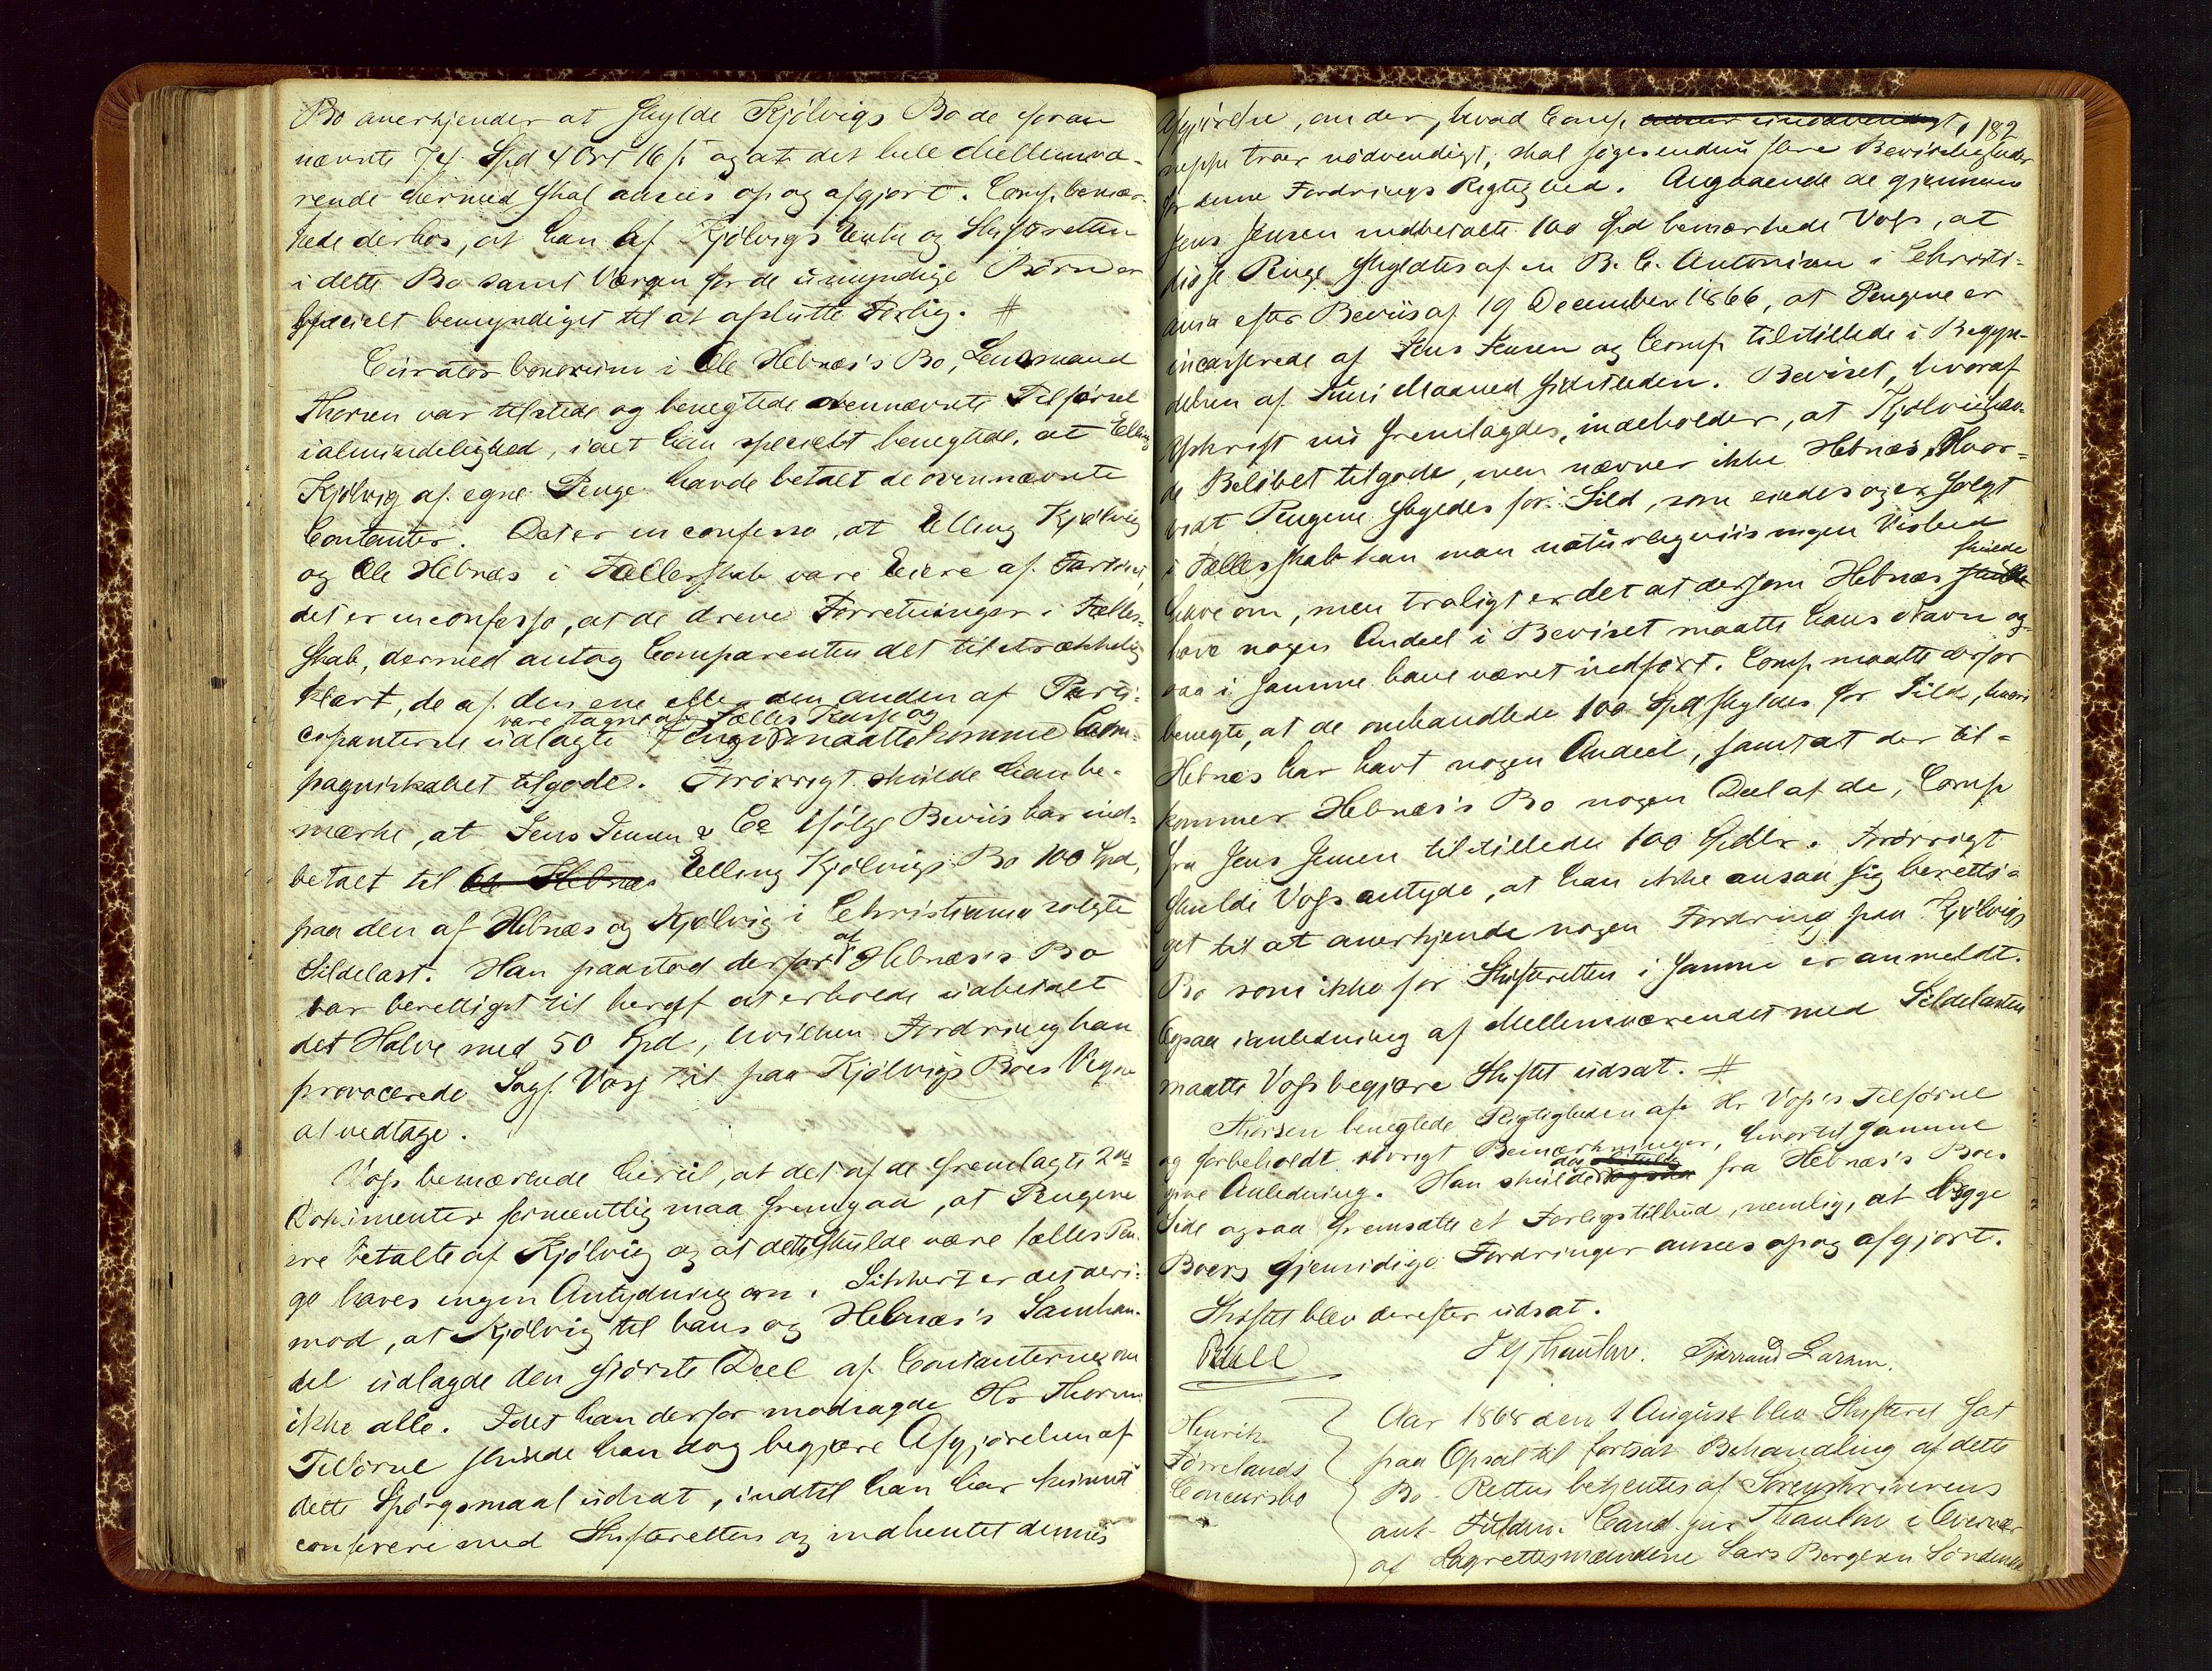 Bo anerkjender at skylde Kjölvigs Bo de foran
nævnte 74 Spd 4 Ort 16 s og at det hele Mellemvæ-
rende hermed skal ansees op og afgjort. Comp. bemær-
kede derhos, at han af Kjölvigs Enke og Skifteretten
i dette Bo samt Værgen for de umyndige Börn er
specielt bemyndiget til at afslutte Forlig. #
Curator bonorum i Ole Hebnæs's Bo, Lensmand
Thorsen var tilstede og benegtede ovennævnte Tilförsel
ialmindelighed, idet han specielt benegtede, at Elling
Kjölvig af egne Penge havde betalt de ovennævnte
Contanter. Det er in confesso, at Elling Kjölvig
og Ole Hebnæs i Fællesskab vare Eiere af Fartöiet,
det er in confesso, at de dreve Forretninger i Fælles-
skab, dermed antog Comparenten det tilstrækkelig
klart, de af den ene eller den anden af Parti-
vare tagne af Fælles Kasse og
cipanterne udlagte Penge maatte komme Com-
pagniskabet tilgode. Forövrigt skulde han be-
mærke, at Jens Jensen & Co ifölge Beviis har ind-
betalt til Ole Hebnæs Elling Kjölvigs Bo 100 Spd,
paa den af Hebnæs og Kjölvig i Christiania solgte
Sildelast. Han paastod derfor at Hebnæs's Bo
var berettiget til heraf at erholde udbetalt
det Halve med 50 Spd, hvilken Fordring han
provocerede Sagf. Voss til paa Kjölvigs Boes Vegne
at vedtage.
Voss bemærkede hertil, at det af de fremlagte 2de
Dokumenter formentlig maa fremgaa, at Pengene
ere betalte af Kjölvig og at dette skulde være fælles Pen-
ge haves ingen Antydning om. Sikkert er det deri-
mod, at Kjölvig til hans og Hebnæs's Samhan-
del udlagde den störste Deel af Contanterne om
ikke alle. Idet han derfor modsagde Hr Thorsens
Tilförsel skulde han dog begjære Afgjörelsen af
dette Spörgsmaal udsat, indtil han har kunnet
conferere med Skifteretten og indhentet dennes
182
Afgjörelse, om der, hvad Comp.
neppe troer nödvendigt, skal söges endnu flere Bevisligheder
for denne Fordrings Rigtighed. Angaaende de gjennem
Jens Jensen indbetalte 100 Spd bemærkede Voss, at
disse Penge skyldtes af en B. C. Antonisen i Christi-
ania efter Beviis af 19 December 1866, at Pengene er
incasserede af Jens Jensen og Comp tilstillede i Begyn-
delsen af Juni Maaned sidstleden. Beviset, hvoraf
Afskrift nu fremlagdes, indeholder, at Kjölvig hav-
de Belöbet tilgode, men nævner ikke Hebnæs, Hvor-
vidt Pengene skyldes for Sild, som eiedes og er solgt
i Fællesskab kan man naturligviis ingen Vished
have om, men troligt er det at dersom Hebnæs skulde
have nogen Andeel i Beviset maatte hans Navn og-
saa i samme have været indfört. Comp maatte derfor
benegte, at de omhandlede 100 Spd skyldes for Sild, hvori
Hebnæs har havt nogen Andeel, samt at der til-
kommer Hebnæs's Bo nogen Deel af de, Comp
fra Jens Jensen tilstillede 100 Spdlr. Forövrigt
skulde Voss antyde, at han ikke ansaa sig beretti-
get til at anerkjende nogen Fordring paa Kjölvigs
Bo som ikke for Skifteretten i samme er anmeldt.
Ogsaa i anledning af Mellemværendet med Sildelasten
maatte Voss begjære Skiftet udsat. #
Thorsen benegtede Rigtigheden af Hr Voss's Tilförsel
og forbeholdt övrigt Bemærkninger, hvortil samme
give Anledning. Han skulde dog fra Hebnæs's Boes
Side ogsaa fremsætte et Forligstilbud, nemlig, at begge
Boers gjensidige Fordringer ansees op og afgjort.
Skiftet blev derefter udsat.
Thaulow. Tjærand Larsen.
Henrik
Förrelands
Concursbo
Aar 1868 den 1 August blev Skifteret sat
paa Opsal til fortsat Behandling af dette
Bo. Retten betjentes af Sorenskriverens
aut. Fuldm. Cand. jur Thaulow i Overvær
af Lagrettesmændene Lars Bergesen Söndenaa